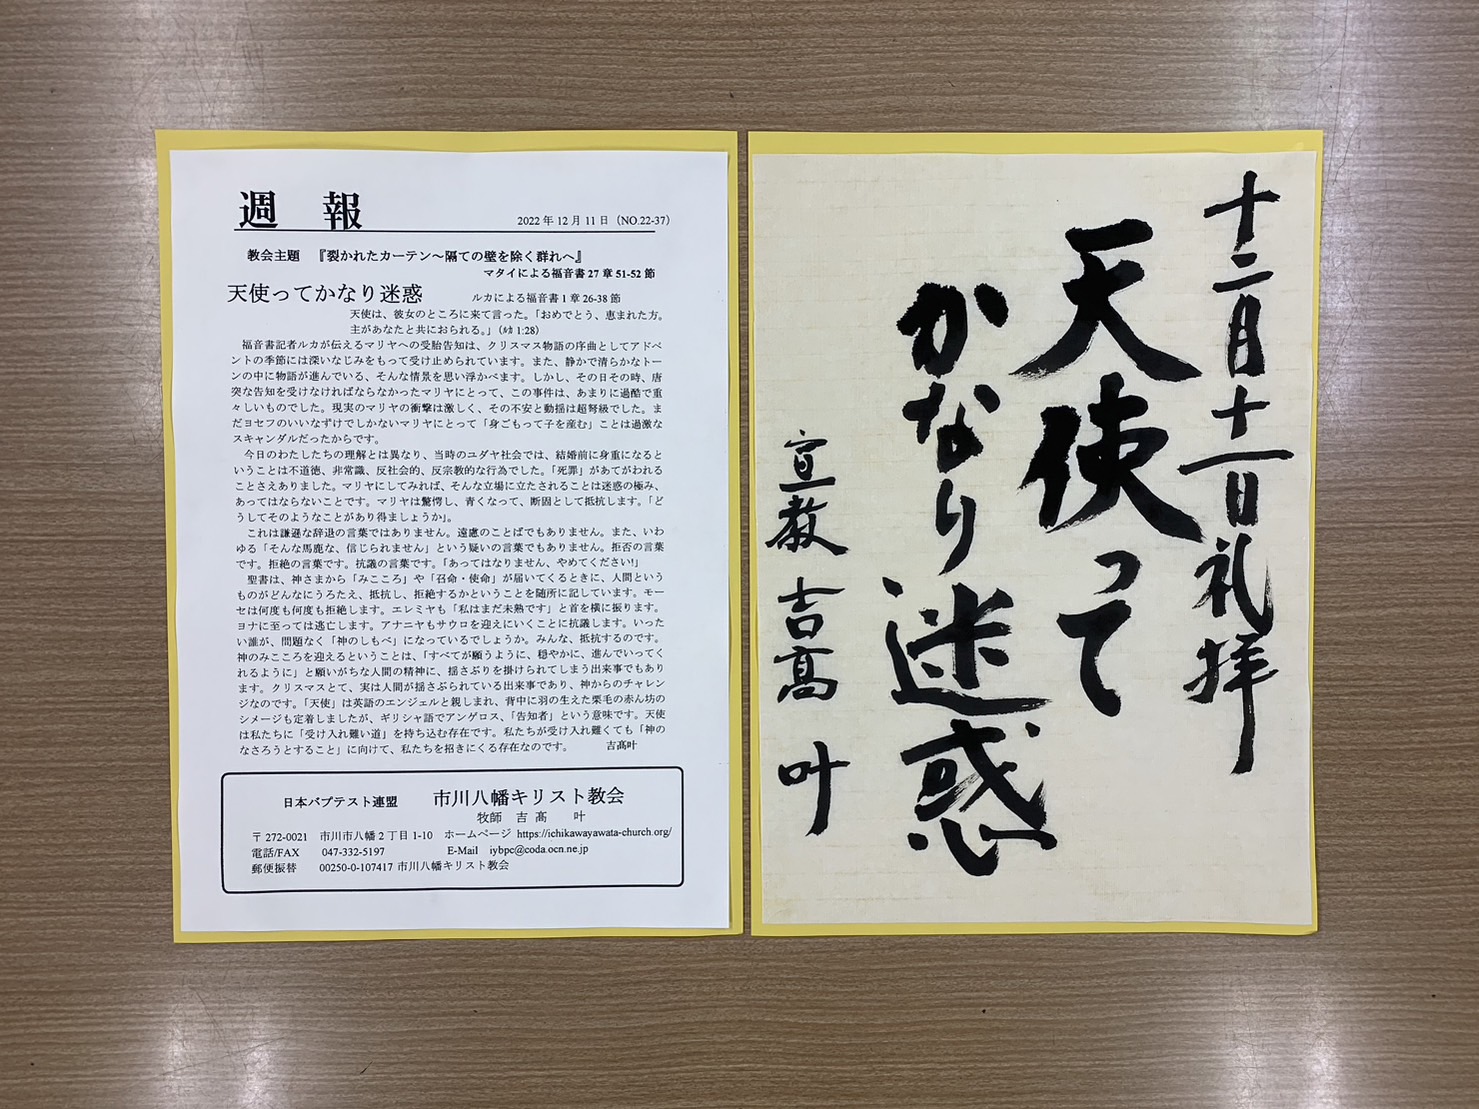 週 報
2022年12月11日（NO.22-37）
教会主題 『裂かれたカーテン～隔ての壁を除く群れへ』
マタイによる福音書27章51-52節
天使ってかなり迷惑 ルカによる福音書1章26-38節
天使は、彼女のところに来て言った。「おめでとう、恵まれた方。
主があなたと共におられる。」（ルカ 1:28）
福音書記者ルカが伝えるマリヤへの受胎告知は、クリスマス物語の序曲としてアドベ
ントの季節には深いなじみをもって受け止められています。また、静かで清らかなトー
ンの中に物語が進んでいる、そんな情景を思い浮かべます。しかし、その日その時、唐
突な告知を受けなければならなかったマリヤにとって、この事件は、あまりに過酷で重
々しいものでした。現実のマリヤの衝撃は激しく、その不安と動揺は超弩級でした。ま
だヨセフのいいなずけでしかないマリヤにとって「身ごもって子を産む」ことは過激な
スキャンダルだったからです。
今日のわたしたちの理解とは異なり、当時のユダヤ社会では、結婚前に身重になると
いうことは不道徳、非常識、反社会的、反宗教的な行為でした。「死罪」があてがわれる
ことさえありました。マリヤにしてみれば、そんな立場に立たされることは迷惑の極み、
あってはならないことです。マリヤは驚愕し、青くなって、断固として抵抗します。「ど
うしてそのようなことがあり得ましょうか」。
これは謙遜な辞退の言葉ではありません。遠慮のことばでもありません。また、いわ
ゆる「そんな馬鹿な、信じられません」という疑いの言葉でもありません。拒否の言葉
です。拒絶の言葉です。抗議の言葉です。「あってはなりません、やめてください!」
聖書は、神さまから「みこころ」や「召命・使命」が届いてくるときに、人間という
ものがどんなにうろたえ、抵抗し、拒絶するかということを随所に記しています。モー
セは何度も何度も拒絶します。エレミヤも「私はまだ未熟です」と首を横に振ります。
ヨナに至っては逃亡します。アナニヤもサウロを迎えにいくことに抗議します。いった
い誰が、問題なく「神のしもべ」になっているでしょうか。みんな、抵抗するのです。
神のみこころを迎えるということは、「すべてが願うように、穏やかに、進んでいってく
れるように」と願いがちな人間の精神に、揺さぶりを掛けられてしまう出来事でもあり
ます。クリスマスとて、実は人間が揺さぶられている出来事であり、神からのチャレン
ジなのです。「天使」は英語のエンジェルと親しまれ、背中に羽の生えた栗毛の赤ん坊の
シメージも定着しましたが、ギリシャ語でアンゲロス、「告知者」という意味です。天使
は私たちに「受け入れ難い道」を持ち込む存在です。私たちが受け入れ難くても「神の
なさろうとすること」に向けて、私たちを招きにくる存在なのです。 吉髙叶
日本バプテスト連盟 市川八幡キリスト教会
牧師 吉 髙 叶
〒272-0021 市川市八幡2丁目1-10 ホームページ https://ichikawayawata-church.org/
電話/FAX 047-332-5197 E-Mail iybpc@coda.ocn.ne.jp
郵便振替 00250-0-107417 市川八幡キリスト教会
十二月十一日礼拝
天使って
かなり迷惑
宣教 吉髙 叶